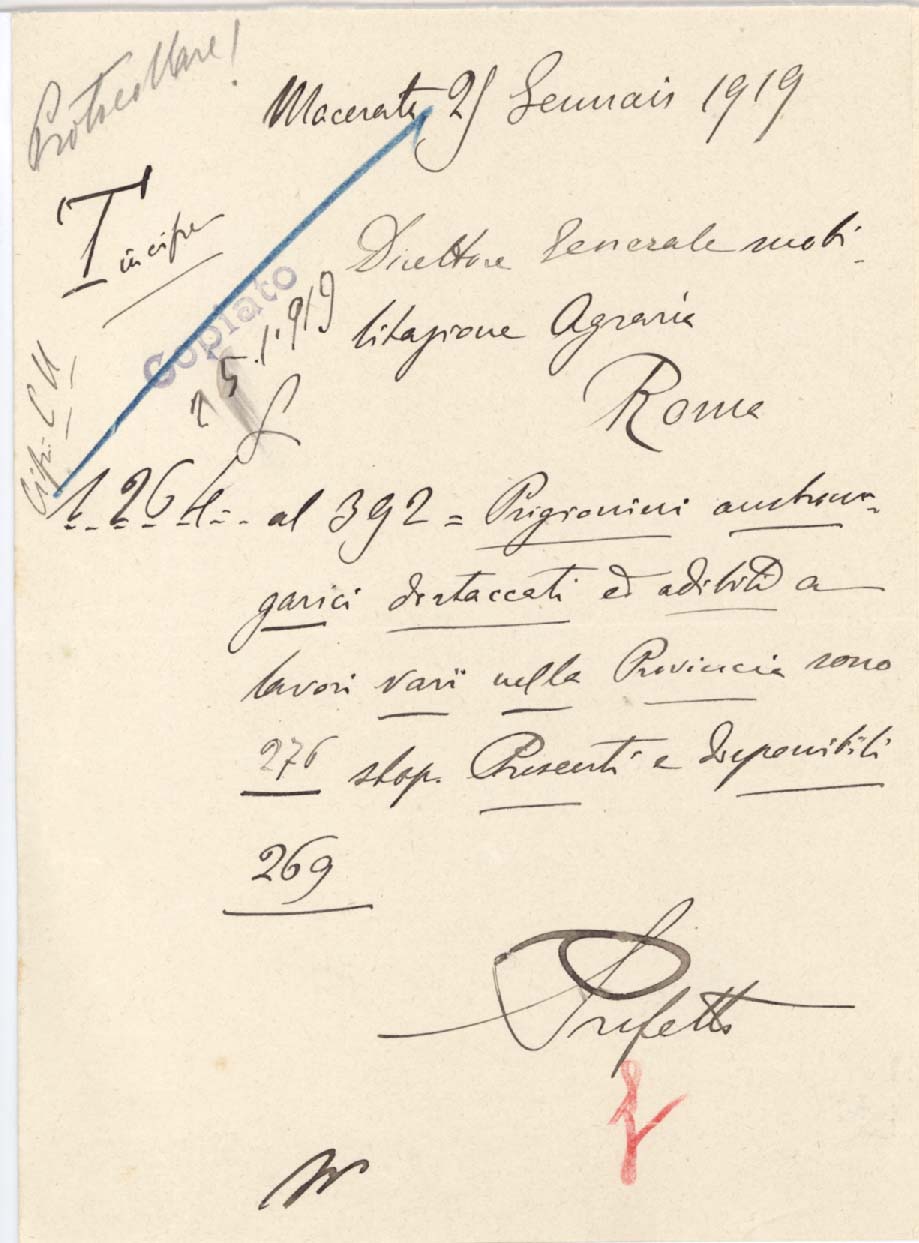 Protocollare!
Macerata 25 Gennaio 1919
T in cifra
Direttore Generale mobi-
litazione Agraria
Roma
Copiato
25.1.919
Cifr. CU
1.264. al 392 = Prigionieri austroun-
garici distaccati ed adibiti a
lavori varii nella Provincia sono
276 stop. Presenti e disponibili
269
Prefetto